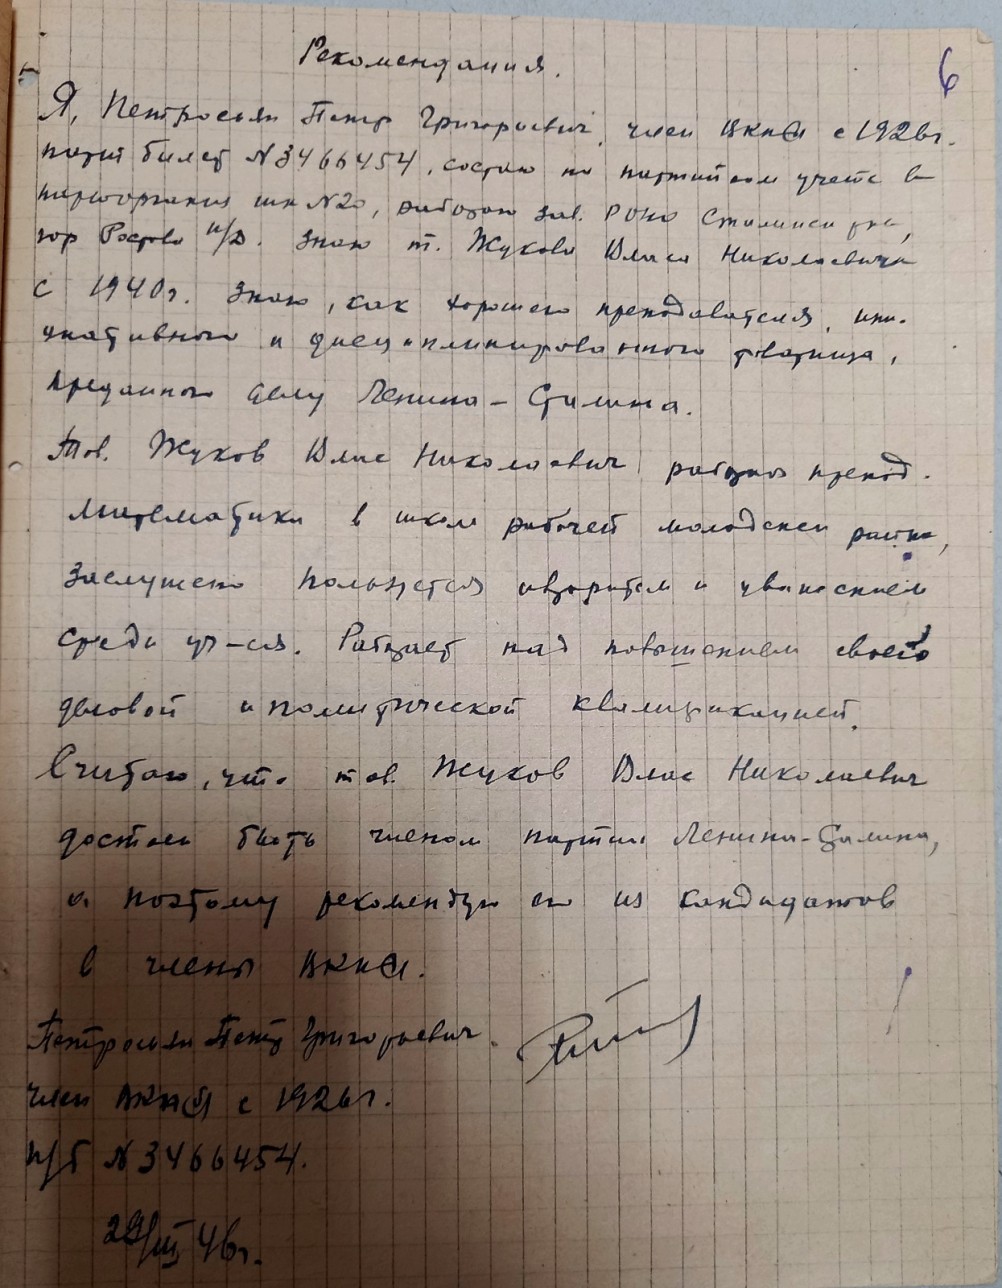 Рекомендация.
6
Я, Петросьян Петр Григорьевич, член ВКП(б) с 1926г.
парт билет N3466454, состою на партийном учете в
парторганиз шк N20, работаю зав. РОНО Сталинск р-на,
гор Ростова н/Д. Знаю т. Жукова Власа Николаевича
с 1940г. Знаю, как хорошего преподавателя, ини-
циативного и дисциплинированного товарища,
преданного делу Ленина - Сталина.
Тов. Жуков Влас Николаевич работая препод.
математики в школе рабочей молодежи
заслужено пользуется авторитетом и уважением
среди уч-ся. Работает над повышением своей
деловой и политической квалификацией.
Считаю, что тов. Жуков Влас Николаевич
достоен быть членом партии Ленина-Сталина,
а поэтому рекомендую его из кандидатов
в члены ВКП(б).
Петросьян Петр Григорьевич.
член ВКП(б) с 1926г.
п/б N3466454.
29/III 46г.